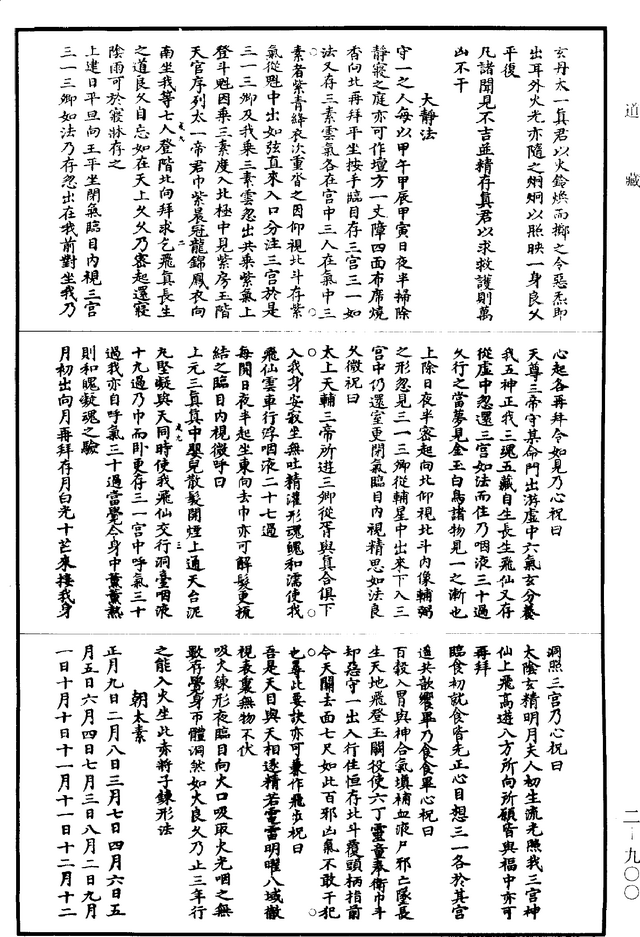 道藏
玄丹太一真君以火鈴煥而擲之令惡炁即
出耳外火光亦隨之炯炯以照映一身良久
平復
凡諸聞見不吉並精存真君以求救護則萬
凶不干
大靜法
守一之人每以甲午甲辰甲寅日夜半掃除
靜寂之庭亦可作壇方一丈障四面布席燒
香向北再拜平坐按手臨目存三宮三一如
法又存三素雲氣各在宮中三人在氣中三
素者紫青絳衣次重沓之因仰視北斗存紫
氣從魁中出如弦直來入口分注三宮於是
三一三卿及我乘三素雲忽出共乘紫氣上
登斗魁因乘三素度入北極中見紫房玉階
天官序列太一帝君巾紫晨冠龍錦鳳衣向
南坐我等七人登階北向拜求乞飛真長生
之道良久自忘如在天上久久乃密起還寢
陰雨可於寢牀存之
上建日平旦向王平坐閉氣臨目內視三宮
三一三卿如法乃存忽出在我前對坐我乃
心起各再拜令如見乃心祝曰
天尊三帝守其命門出游虛中六氣玄分養
我五神正我三魂五藏自生長生飛仙又存
從虛中忽還三宮如法而住乃咽液三十過
久行之當夢見金玉白鳥諸物見一之漸也
上除日夜半密起向北仰視北斗內像輔弼
之形忽見三一三卿從輔星中出來下入三
宮中仍還室更閉氣臨目內視精思如法良
久微祝曰
太上天輔三帝所遊三卿從胥與真合俱下
入我身安寂坐無吐精灌形魂魄和濡使我
飛仙雲車行浮咽液二十七過
每閑日夜半起坐東向去巾亦可解髮更梳
結之臨目內視微呼曰
上元三真真中嬰兒散髮開煙上通天台泥
丸堅凝與天同時使我飛仙交行洞臺咽液
十九過乃巾而卧更存三一宮中呼氣三十
過我亦自呼氣三十過當覺令身中薰薰熱
則和暖凝魂之驗
月初出向月再拜存月白光十芒來接我身
洞照三宮乃心祝曰
太陰玄精明月夫人初生流光照我三宮神
仙上飛高遊八方所向所願皆與福中亦可
再拜
臨食初就食皆先正心目想三一各於其宮
進共歆饗畢乃食食畢心祝曰
百穀入胃與神合氣填補血液尸邪亡墜長
生天地飛登玉闕役使六丁靈童奉衛巾斗
却惡守一出入行住恒存北斗覆頭柄指前
令天關去面七尺如此百邪凶氣不敢干犯
也尋此要訣亦可兼作飛步祝曰
吾是天目與天相逐精若雷電明曜八域徹
視表裏無物不伏
吸火鍊形夜臨目向火口吸取火光咽之無
數存覺身帀體洞然如火良久乃止三年行
之能入火生此赤將子鍊形法
朝太素
正月九日二月八日三月七日四月六日五
月五日六月四日七月三日八月二日九月
一日十月十日十一月十一日十二月十二
二—九〇〇